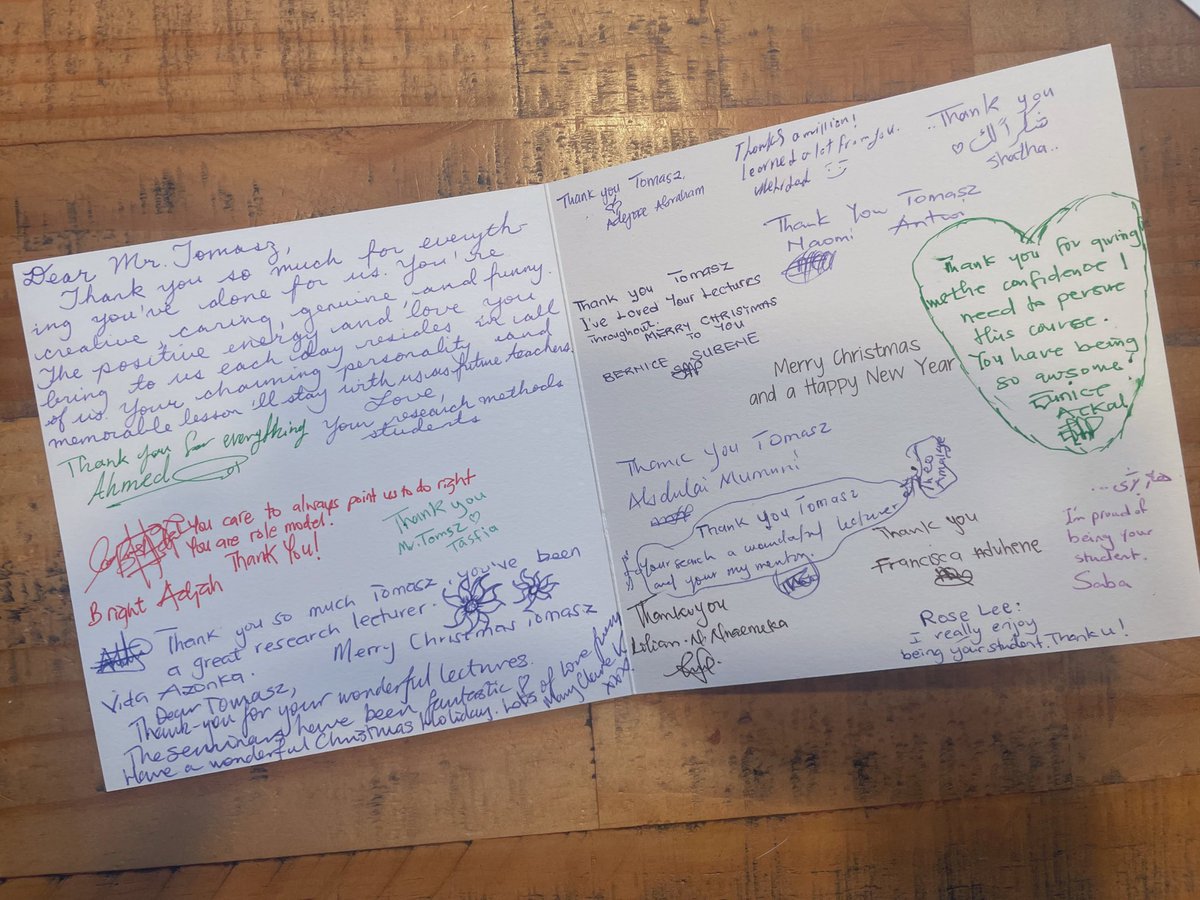 Dear Mr. Tomasz,
Thank you so much for everyth-
ing you've done for us. You're
creative, caring, genuine and funny.
The positive energy and love you
bring to us each day resides in all
of us. Your charming personality and
memorable lesson 'll stay with us as future teachers.
Love,
your research methods
students
Thank you for everything
Ahmed
You care to always point us to do right
You are role model!
Thank You!
Bright Adjah
Thank you
Mr. Tomsz
Tasfia
Thank you so much Tomasz. you've been
a great research lecturer.
Merry Christmas Tomasz
Vida Azonka.
Dear Tomasz,
Thank-you for your wonderful lectures.
The seminars have been fantastic
Have a wonderful Christmas Holiday. Lots of love from
Mary Claude K
xoxo
Thank you Tomasz,
Adejoke Abraham
Thanks a million!
Learned a lot from you.
Mehrdad
..Thank you
شكراً لك
shatha..
Thank You Tomasz
Naomi Antwi
Thank you Tomasz
I've Loved Your Lectures
Throughout.
MERRY CHRISTMAS
TO YOU
BERNICE SUBENE
Merry Christmas
and a Happy New Year
Thank you for giving
me the confidence I
need to persue
this course.
You have being
so awsome!
Eunice
Ackal
Thank You Tomasz
Abdulai Mumuni
Thank You Tomasz
Your seach a wonderful lecturer
and your my mentor.
Theo
Thank you
Francisca Aduhene
I'm proud of
being your
student.
Saba
Thank you
Lilian. N. Nnaemeka
Rose Lee:
I really enjoy
being your student. Thank u!